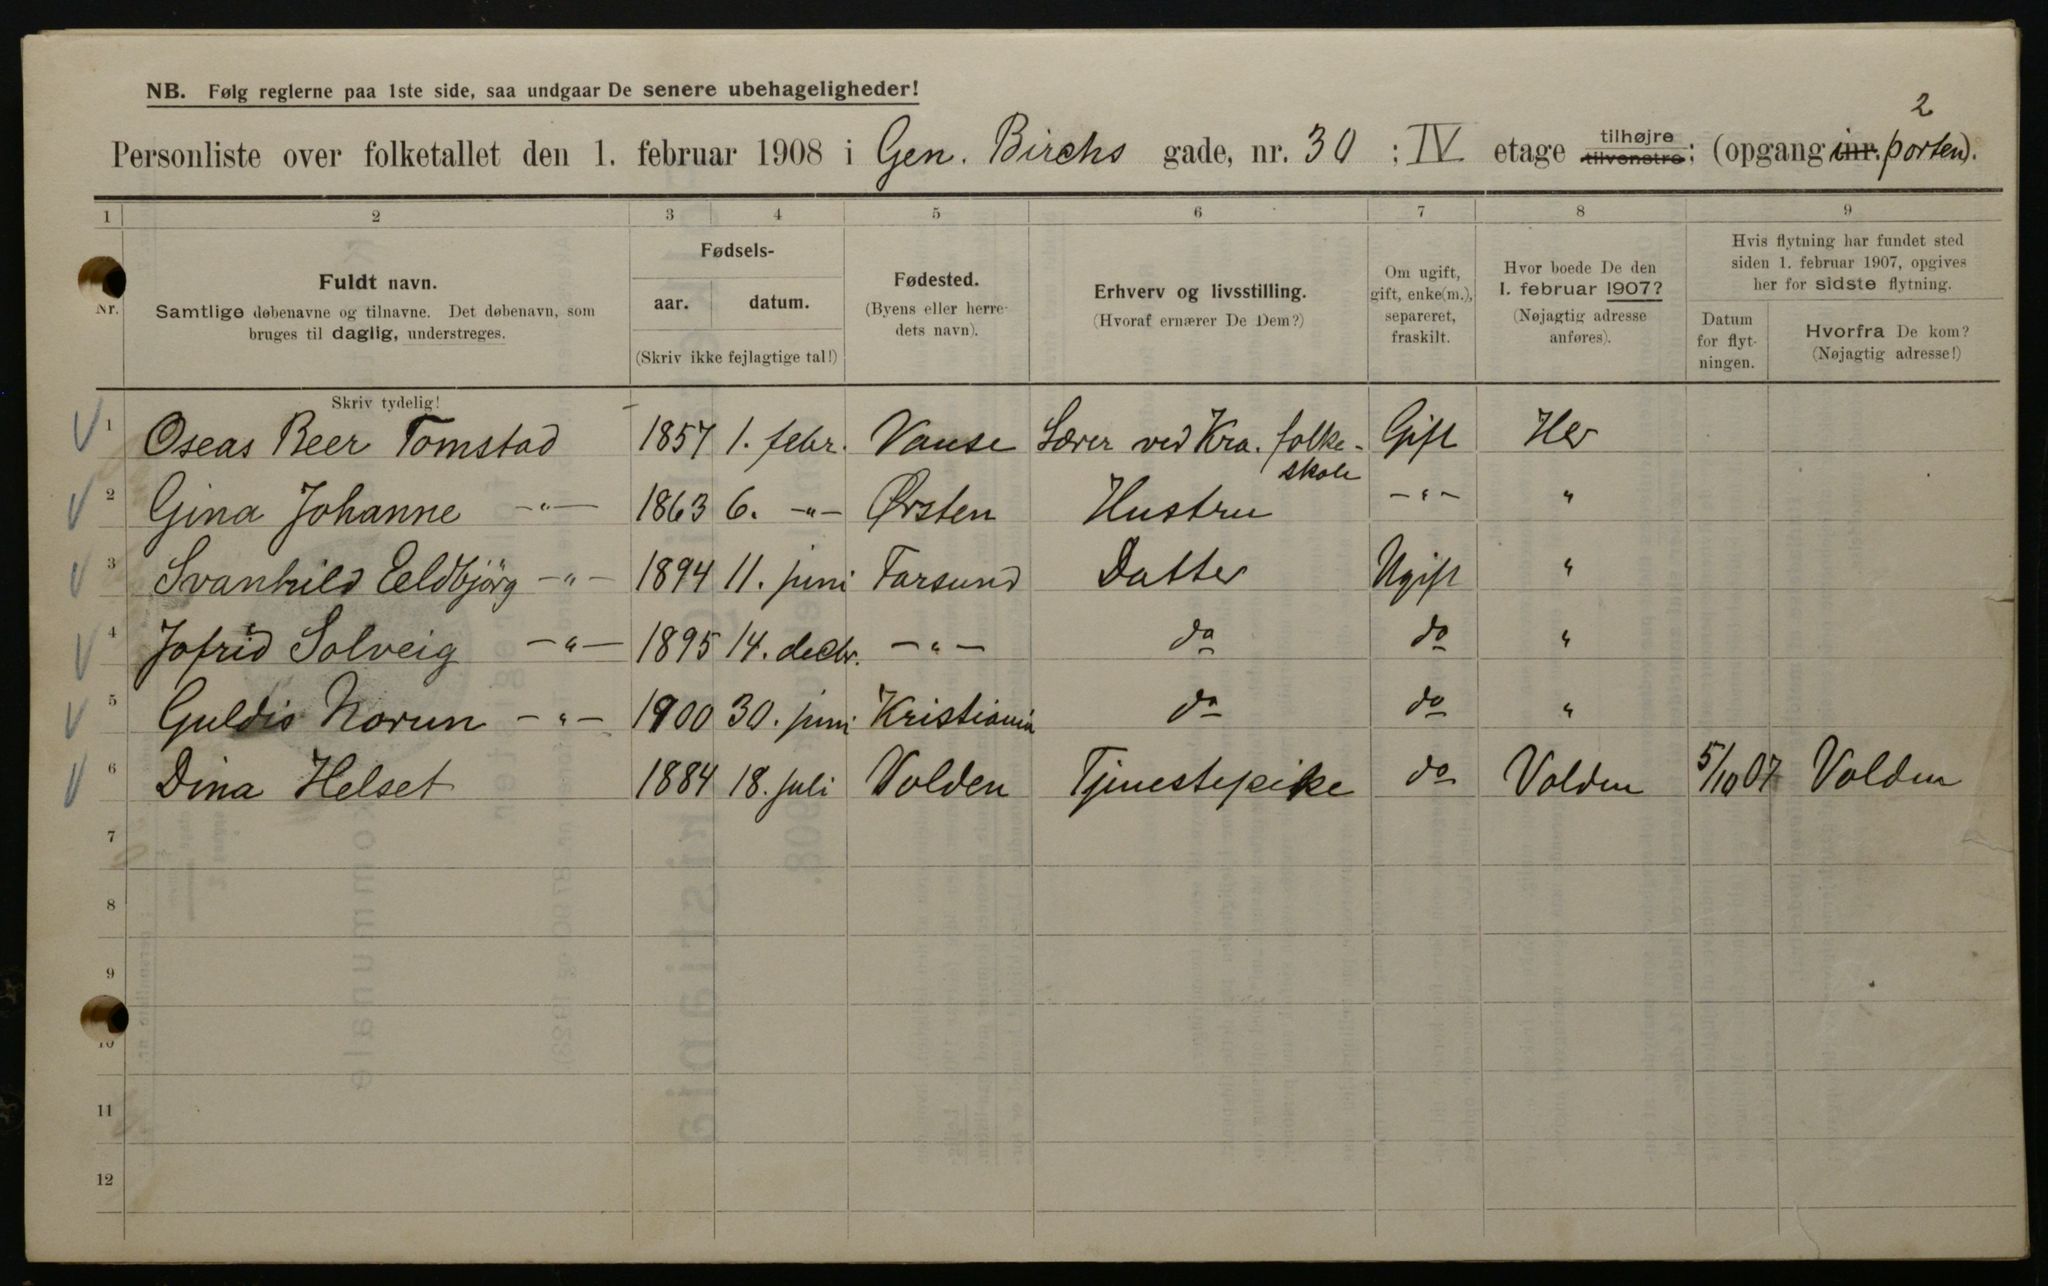 NB. Følg reglerne paa 1ste side, saa undgaar De senere ubehageligheder!
2
Personliste over folketallet den 1. februar 1908 i Gen. Birchs gade, nr. 30 ; IV etage tilhøjre tilvenstre; (opgang i nr. porten).
1 2 3 4 5 6 7 8 9
Nr.
Fuldt navn.
Samtlige døbenavne og tilnavne. Det døbenavn, som
bruges til daglig, understreges.
Fødsels-
aar. datum.
(Skriv ikke fejlagtige tal!)
Fødested.
(Byens eller herre-
dets navn).
Erhverv og livsstilling.
(Hvoraf ernærer De Dem?)
Om ugift,
gift, enke(m.),
separeret,
fraskilt.
Hvor boede De den
1. februar 1907?
(Nøjagtig adresse
anføres).
Hvis flytning har fundet sted
siden 1. februar 1907, opgives
her for sidste flytning.
Datum
for flyt-
ningen.
Hvorfra De kom?
(Nøjagtig adresse!)
Skriv tydelig!
1 Oseas Beer Tomstad 1857 1. febr. Vanse Lærer ved Kra. folke- Gift Her
skole
2 Gina Johanne -"- 1863 6. -"- Ørsten Hustru -"- "
3 Svanhild Eeldbjörg -"- 1894 11. juni Farsund Datter Ugift "
4 Jofrid Solveig -"- 1895 14. decbr. -"- do do "
5 Guldis Norun -"- 1900 30. juni Kristiania do do "
6 Dina Helset 1884 18. juli Volden Tjenestepike do Volden 5/10 07 Volden
7
8
9
10
11
12